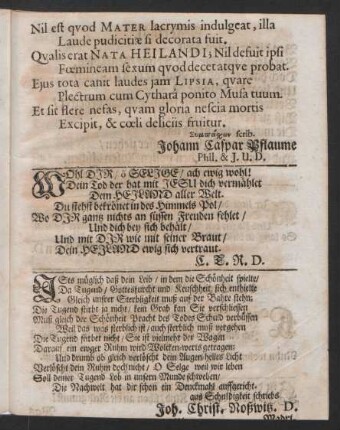 Nil est qvod MATER lacrymis indulgeat, illa
Laude pudicitiæ si decorata fuit,
Qvalis erat NATA HEILANDI; Nil defuit ipsi
Fœmineam sèxum qvod decet atqve probat.
Ejus tota canit laudes jam LIPSIA, qvare
Plectrum cum Cythará ponito Musa tuum.
Et sit flere nefas, quam gloria nescia mortis
Excipit, & cœli deliciis fruitur.
scrib.
Johann Caspar Pflaume
Phil. & J. U. D.
WOhl DIR, ô SELIGE, ach ewig wohl!
Dein Tod der hat mit JESU dich vermählet
Dem HEILAND aller Welt.
Du stehst bekrönet in des Himmels Pol/
Wo DIR gantz nichts an süssen Freuden fehlet/
Und dich bey sich behält/
Und mit DIR wie mit seiner Braut/
Dein HEILAND ewig sich vertraut.
C. T. R. D.
ISts müglich daß dein Leib/ in dem die Schönheit spielte/
Da Tugend/ Gottesfurcht und Keuschheit sich enthielte
Gleich unsrer Sterbligkeit muß auf der Bahre stehn;
Die Tugend stirbt ja nicht/ kein Grab kan Sie verschliessen
Muß gleich der Schönheit Pracht des Todes Schuld verbüssen
Weil das was sterblich ist/ auch sterblich muß vergehen
Die Tugend stirbet nicht/ Sie ist vielmehr der Wagen
Darauf ein ewger Ruhm wird Wolcken-werts getragen:
Und drumb ob gleich verlöscht dem Augen helles Licht
Verlöscht dein Ruhm doch nicht/ O Selge weil wir leben
Soll deiner Tugend Lob in unsern Munde schweben/
Die Nachwelt hat dir schon ein Denckmahl auffgericht.
aus Schuldigkeit schriebs
Joh. Christ. Noßwitz. D.
Madri.